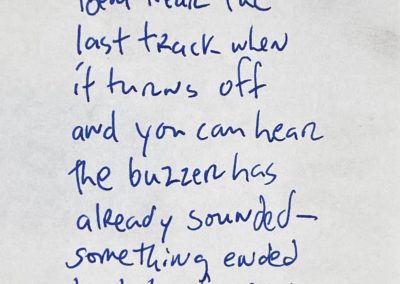 the
last track when
it turns off
and you can hear
the buzzer has
already sounded—
something ended